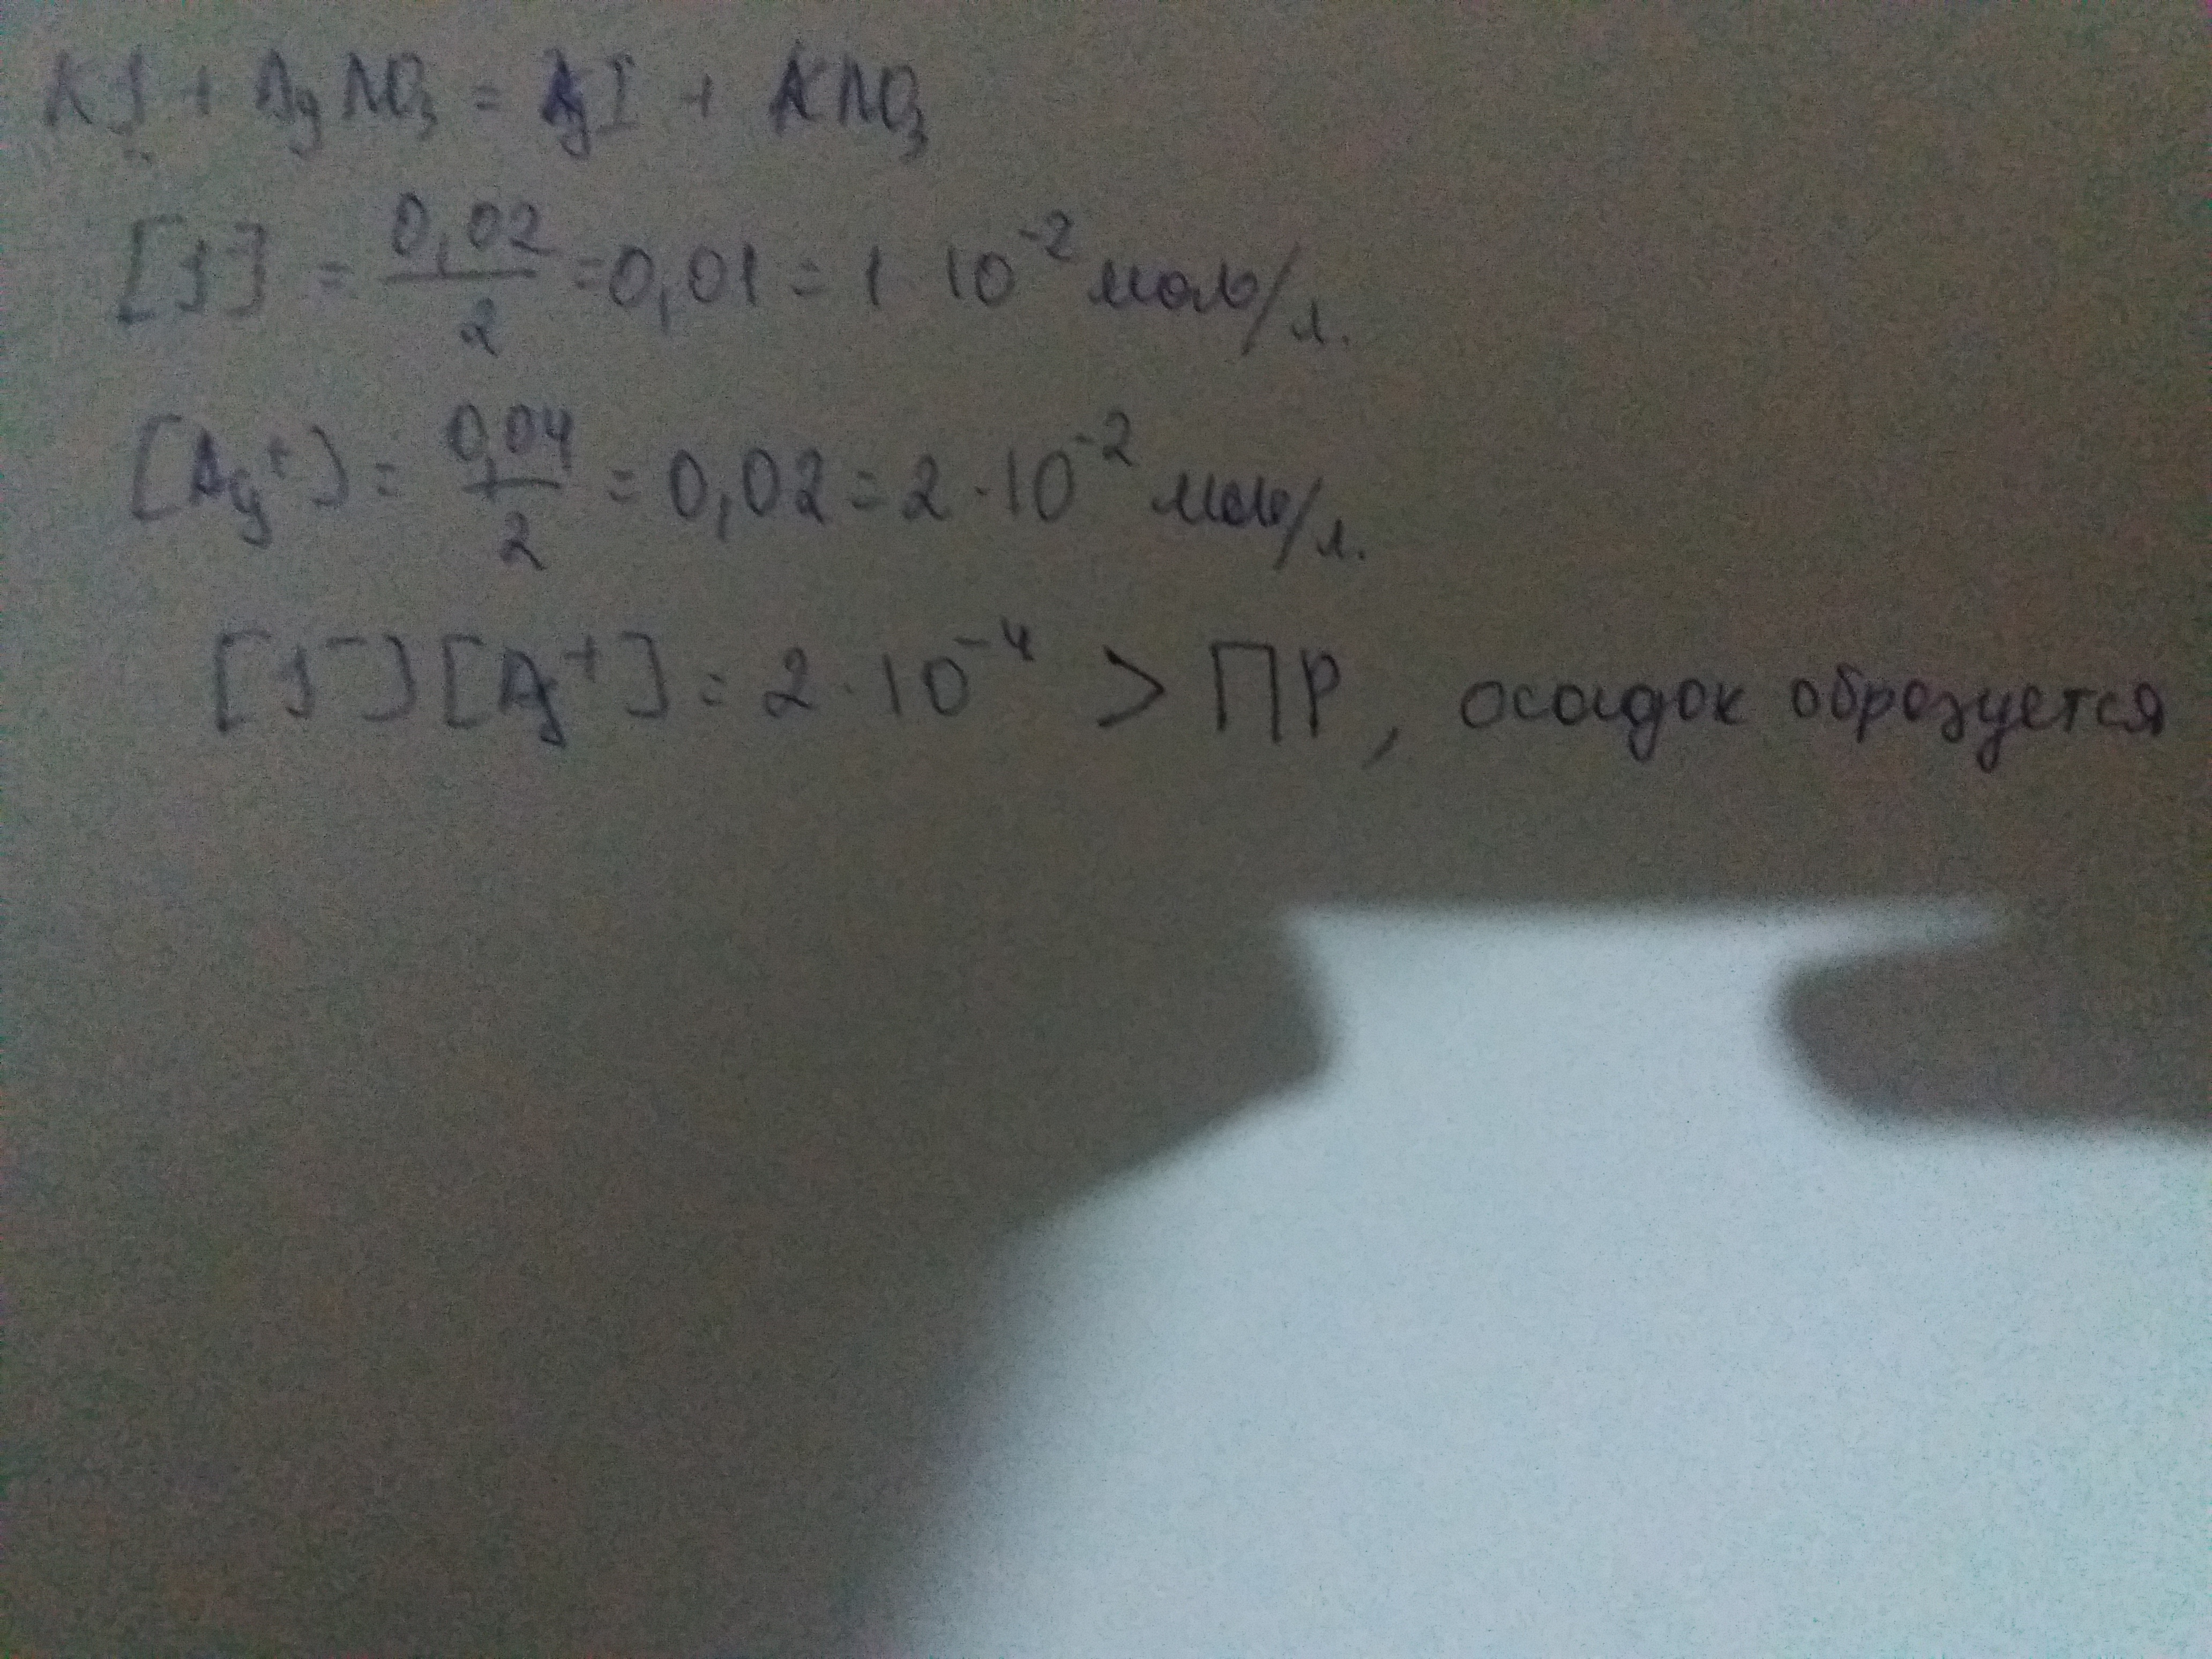 KJ + AgNO₃ = AgI + KNO₃
[J⁻] = 0,02/2 = 0,01 = 1·10⁻² моль/л.
[Ag⁺] = 0,04/2 = 0,02 = 2·10⁻² моль/л.
[J⁻][Ag⁺] = 2·10⁻⁴ > ПР, осадок образуется